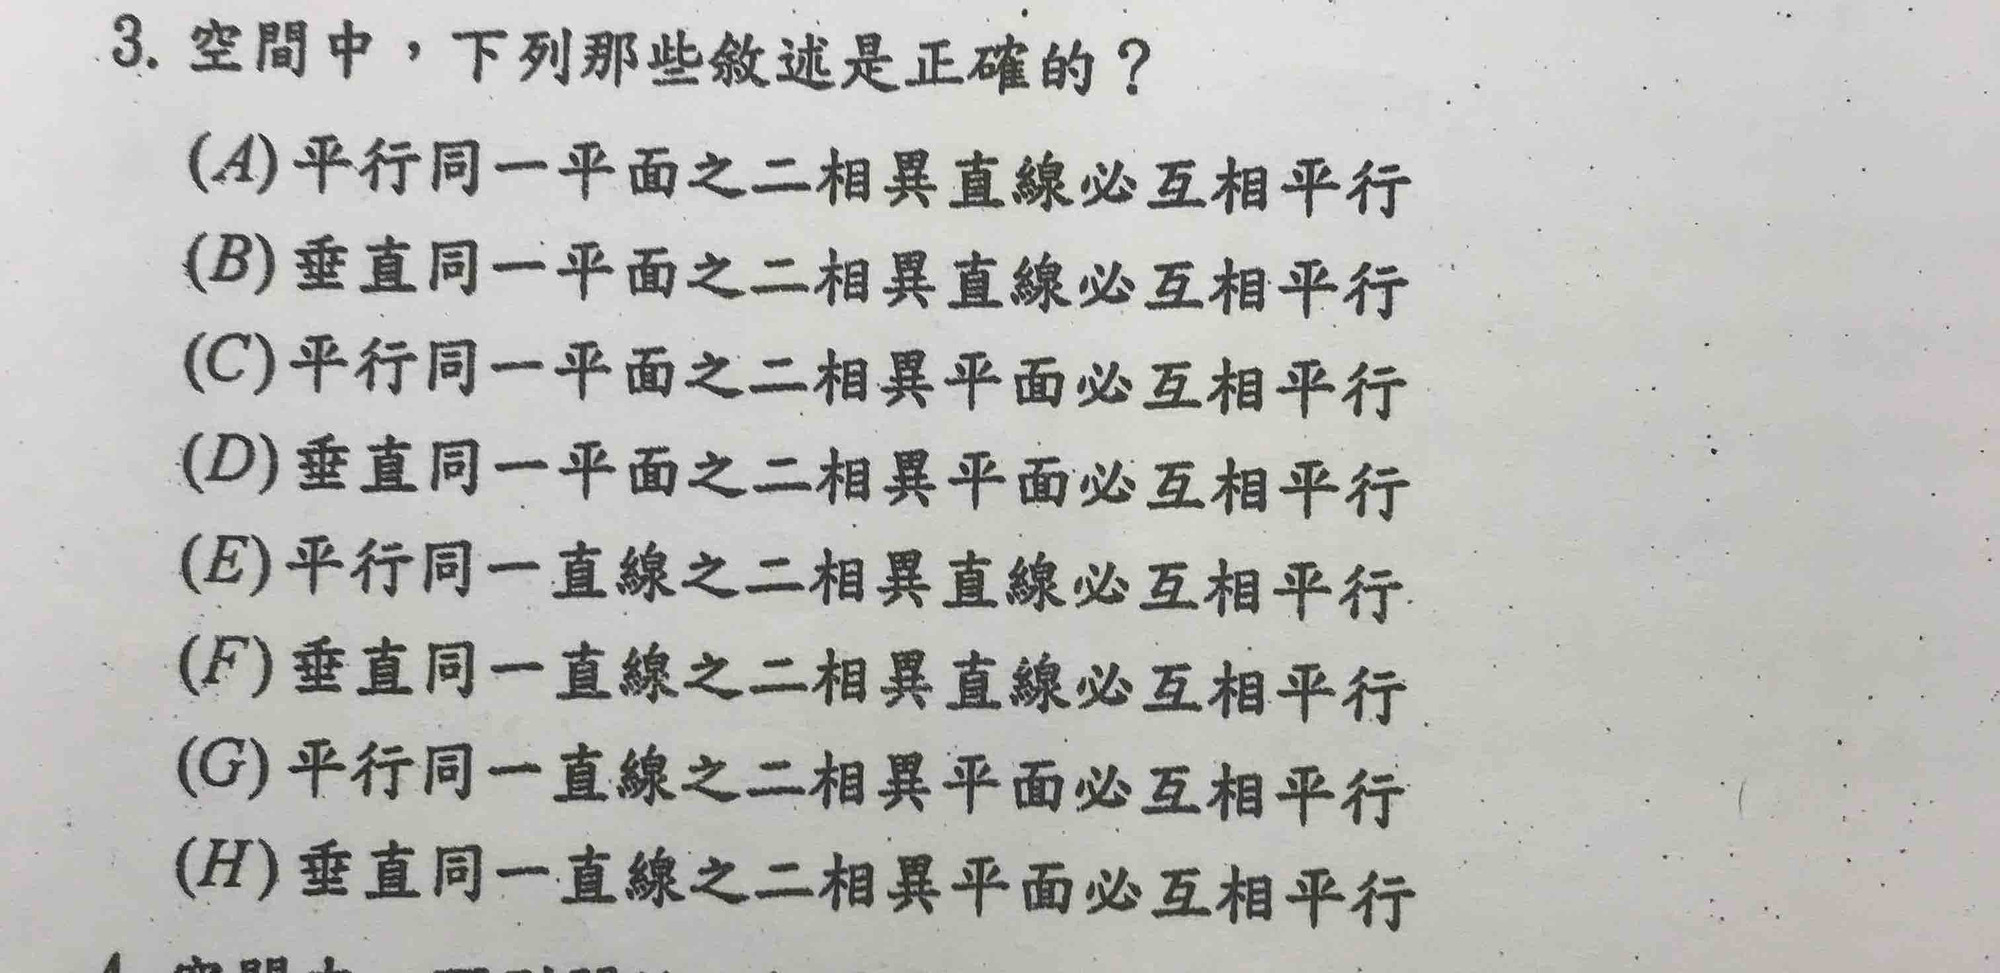 3. 空間中，下列那些敘述是正確的？
(A)平行同一平面之二相異直線必互相平行
(B)垂直同一平面之二相異直線必互相平行
(C)平行同一平面之二相異平面必互相平行
(D)垂直同一平面之二相異平面必互相平行
(E)平行同一直線之二相異直線必互相平行
(F)垂直同一直線之二相異直線必互相平行
(G)平行同一直線之二相異平面必互相平行
(H)垂直同一直線之二相異平面必互相平行